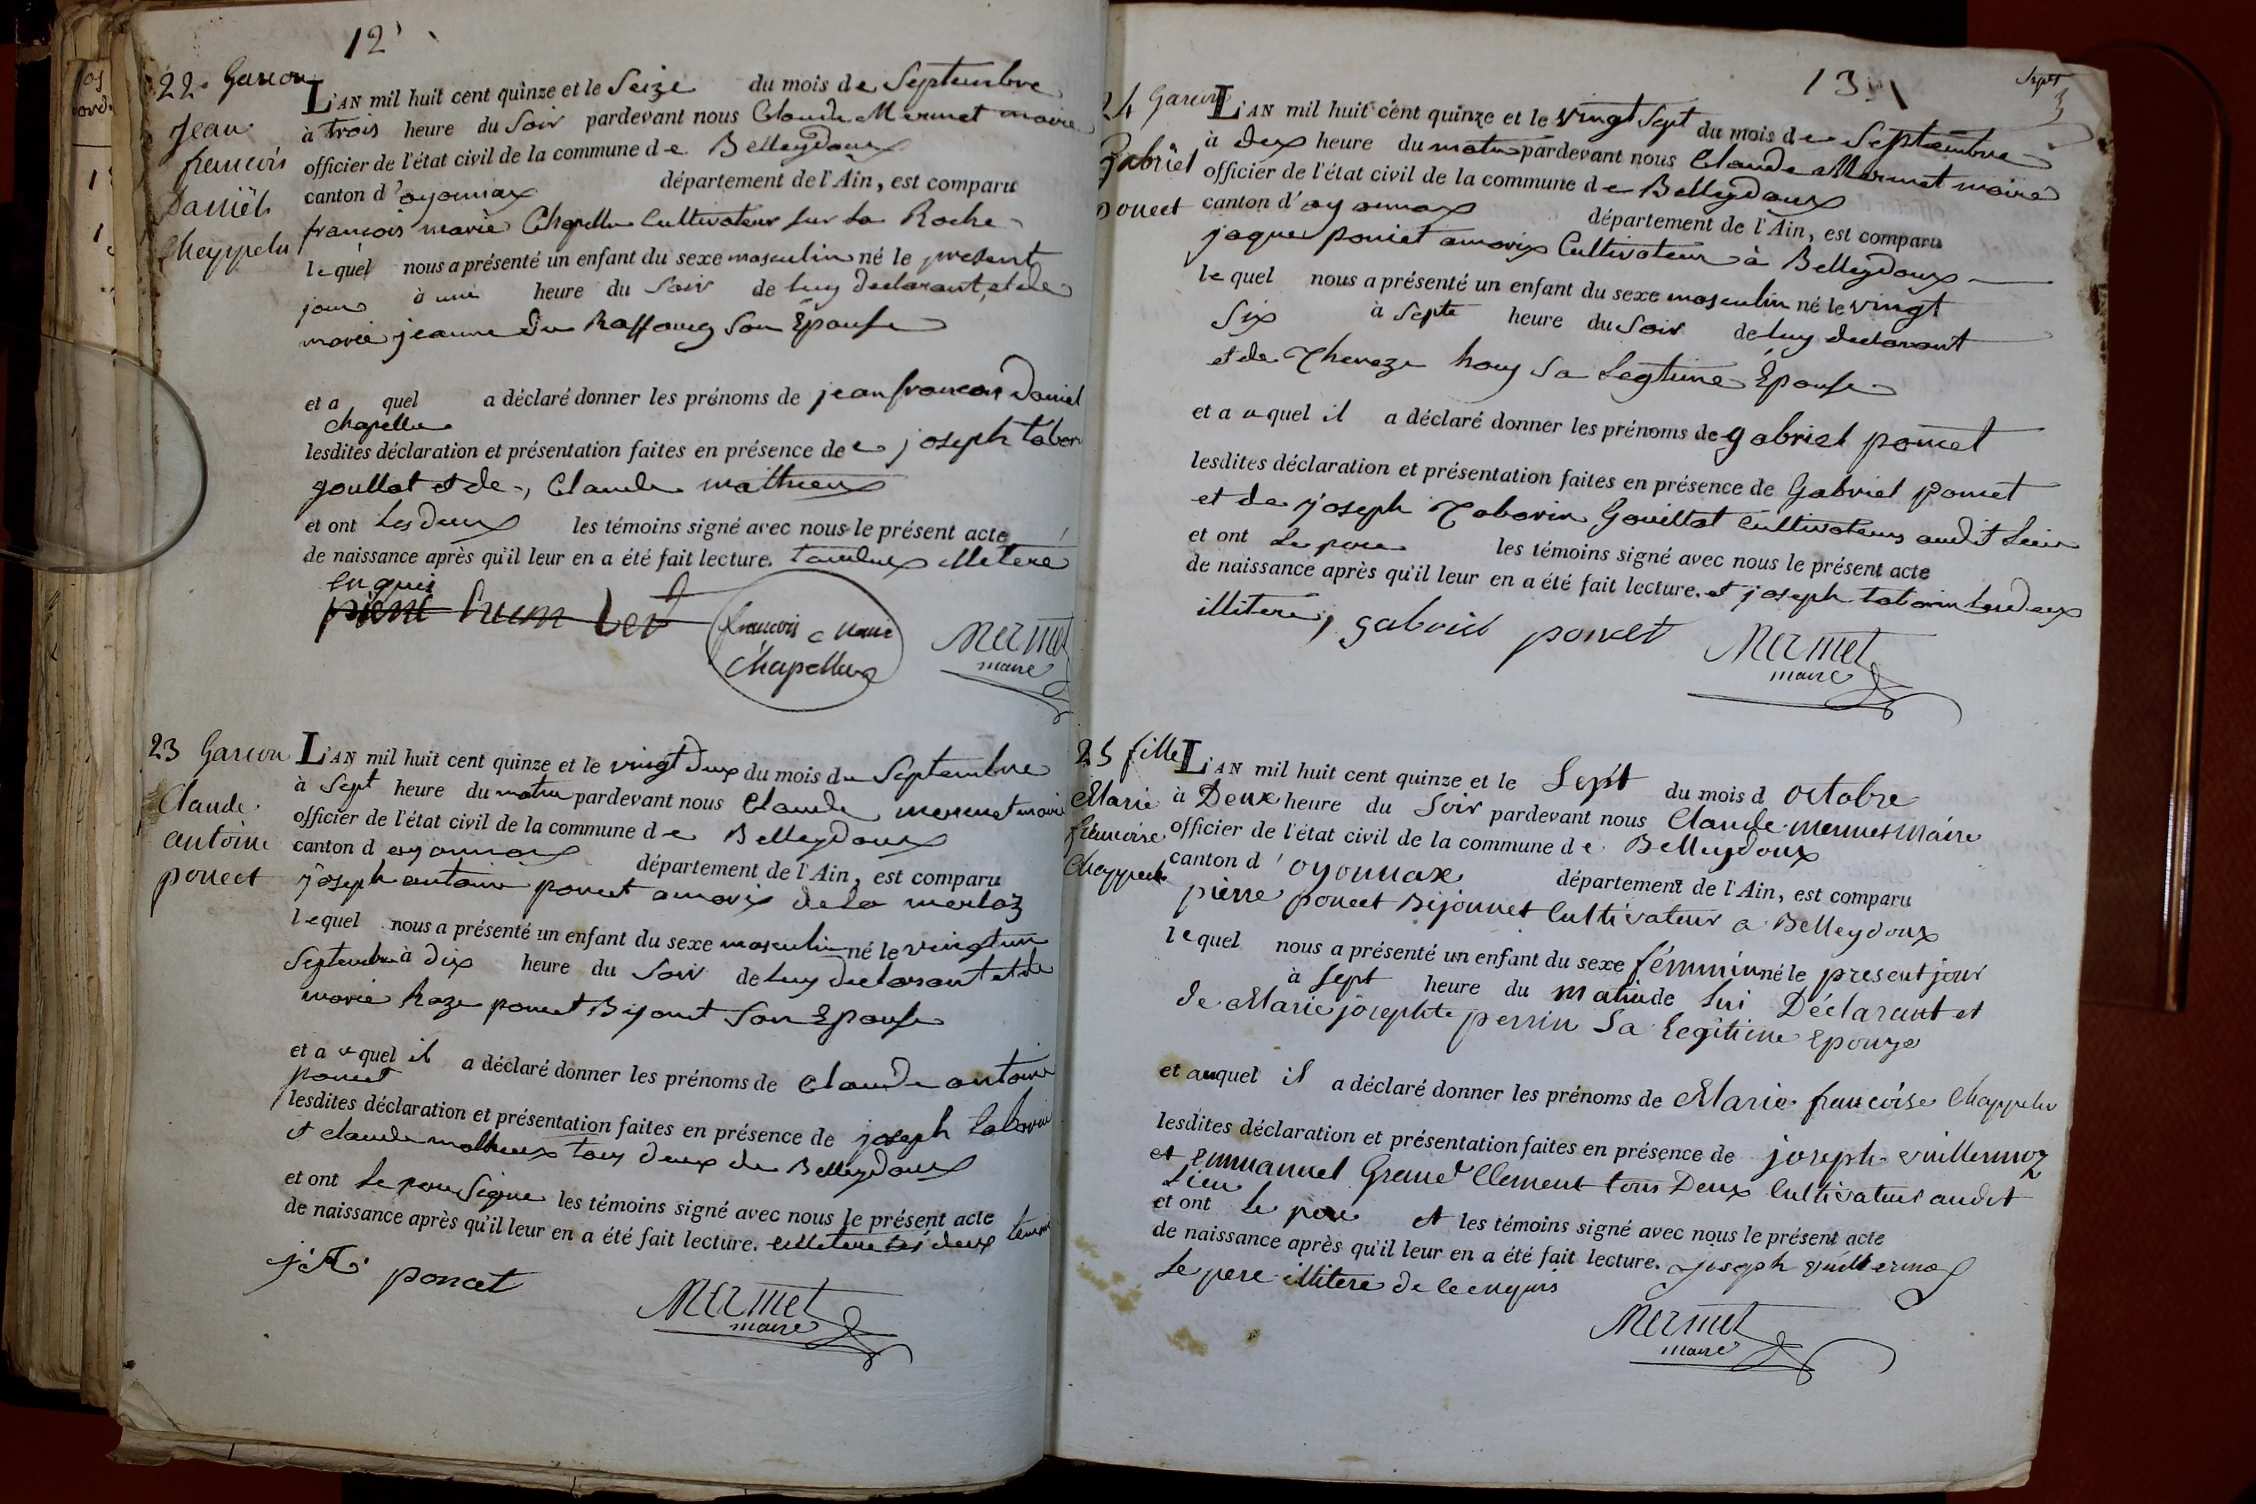 12
22. Garcon
Jean
francois
Daniel
Cheyppelu
L'AN mil huit cent quinze et le Seize du mois de Septembre
à trois heure du Soir pardevant nous Claude Mermet maire
officier de l'état civil de la commune de Belleydoux
canton d'oyonnax département de l'Ain, est comparu
françois marie Chapellu Cultivateur sur la Roche
lequel nous a présenté un enfant du sexe masculin né le présent
jour à une heure du Soir de luy declarant, et de
marie jeanne Du Raffourg Son Epouse
et a quel a déclaré donner les prénoms de jean francois Daniel
Chapellu
lesdites déclaration et présentation faites en présence de joseph tabori
goullat et de Claude mathieu
et ont les deux les témoins signé avec nous le présent acte
de naissance après qu'il leur en a été fait lecture. illiteré
enquis
francois Marie
Chapellu
Mermet
maire
23 Garcon
Claude
antoine
poncet
L'AN mil huit cent quinze et le vingt deux du mois de Septembre
à Sept heure du matin pardevant nous Claude mermet maire
officier de l'état civil de la commune de Belleydoux
canton d oyonnax département de l'Ain, est comparu
joseph antoine poncet amarix de la merlaz
lequel nous a présenté un enfant du sexe masculin né le vingt un
Septembre à dix heure du Soir de luy declarant et de
marie Roze poncet Bijonet Son Epouse
et a u quel il a déclaré donner les prénoms de Claude antoine
poncet
lesdites déclaration et présentation faites en présence de joseph taborin
et claude mathieux tous deux de Belleydoux
et ont le pere Signe les témoins signé avec nous le présent acte
de naissance après qu'il leur en a été fait lecture. illitere les deux temoin
poncet
Mermet
maire
13
Sept
3
24 Garcon
Gabriel
poncet
L'AN mil huit cent quinze et le vingt Sept du mois de Septembre
à deux heure du matin pardevant nous Claude Mermet maire
officier de l'état civil de la commune de Belleydoux
canton d'oyonnax département de l'Ain, est comparu
jaque poncet amarix Cultivateur à Belleydoux
lequel nous a présenté un enfant du sexe masculin né le vingt
Six à Septe heure du Soir de luy declarant
et de Thereze houy Sa Legtime Epouse
et a u quel il a déclaré donner les prénoms de gabriel poncet
lesdites déclaration et présentation faites en présence de Gabriel poncet
et de joseph Taborin Gouillat Cultivateurs audit Lieu
et ont le pere les témoins signé avec nous le présent acte
de naissance après qu'il leur en a été fait lecture. et joseph taborin les deux
illiteré, gabriel poncet
Mermet
maire
25 fille
Marie
francoise
Cheyppelu
L'AN mil huit cent quinze et le Sept du mois d octobre
à Deux heure du Soir pardevant nous Claude mermet Maire
officier de l'état civil de la commune de Belleydoux
canton d'oyonnax département de l'Ain, est comparu
pierre poncet Bijonnet Cultivateur a Belleydoux
lequel nous a présenté un enfant du sexe féminin né le present jour
à Sept heure du matin de lui Déclarant et
de Marie josephte perrin Sa Legitime Epouze
et auquel il a déclaré donner les prénoms de Marie francoise Cheyppelu
lesdites déclaration et présentation faites en présence de joseph vuillermoz
et emmanuel Grand Clement tous Deux Cultivateur audit
Lieu
et ont le pere et les témoins signé avec nous le présent acte
de naissance après qu'il leur en a été fait lecture. joseph vuillermoz
le pere illitere de ce enquis
Mermet
maire